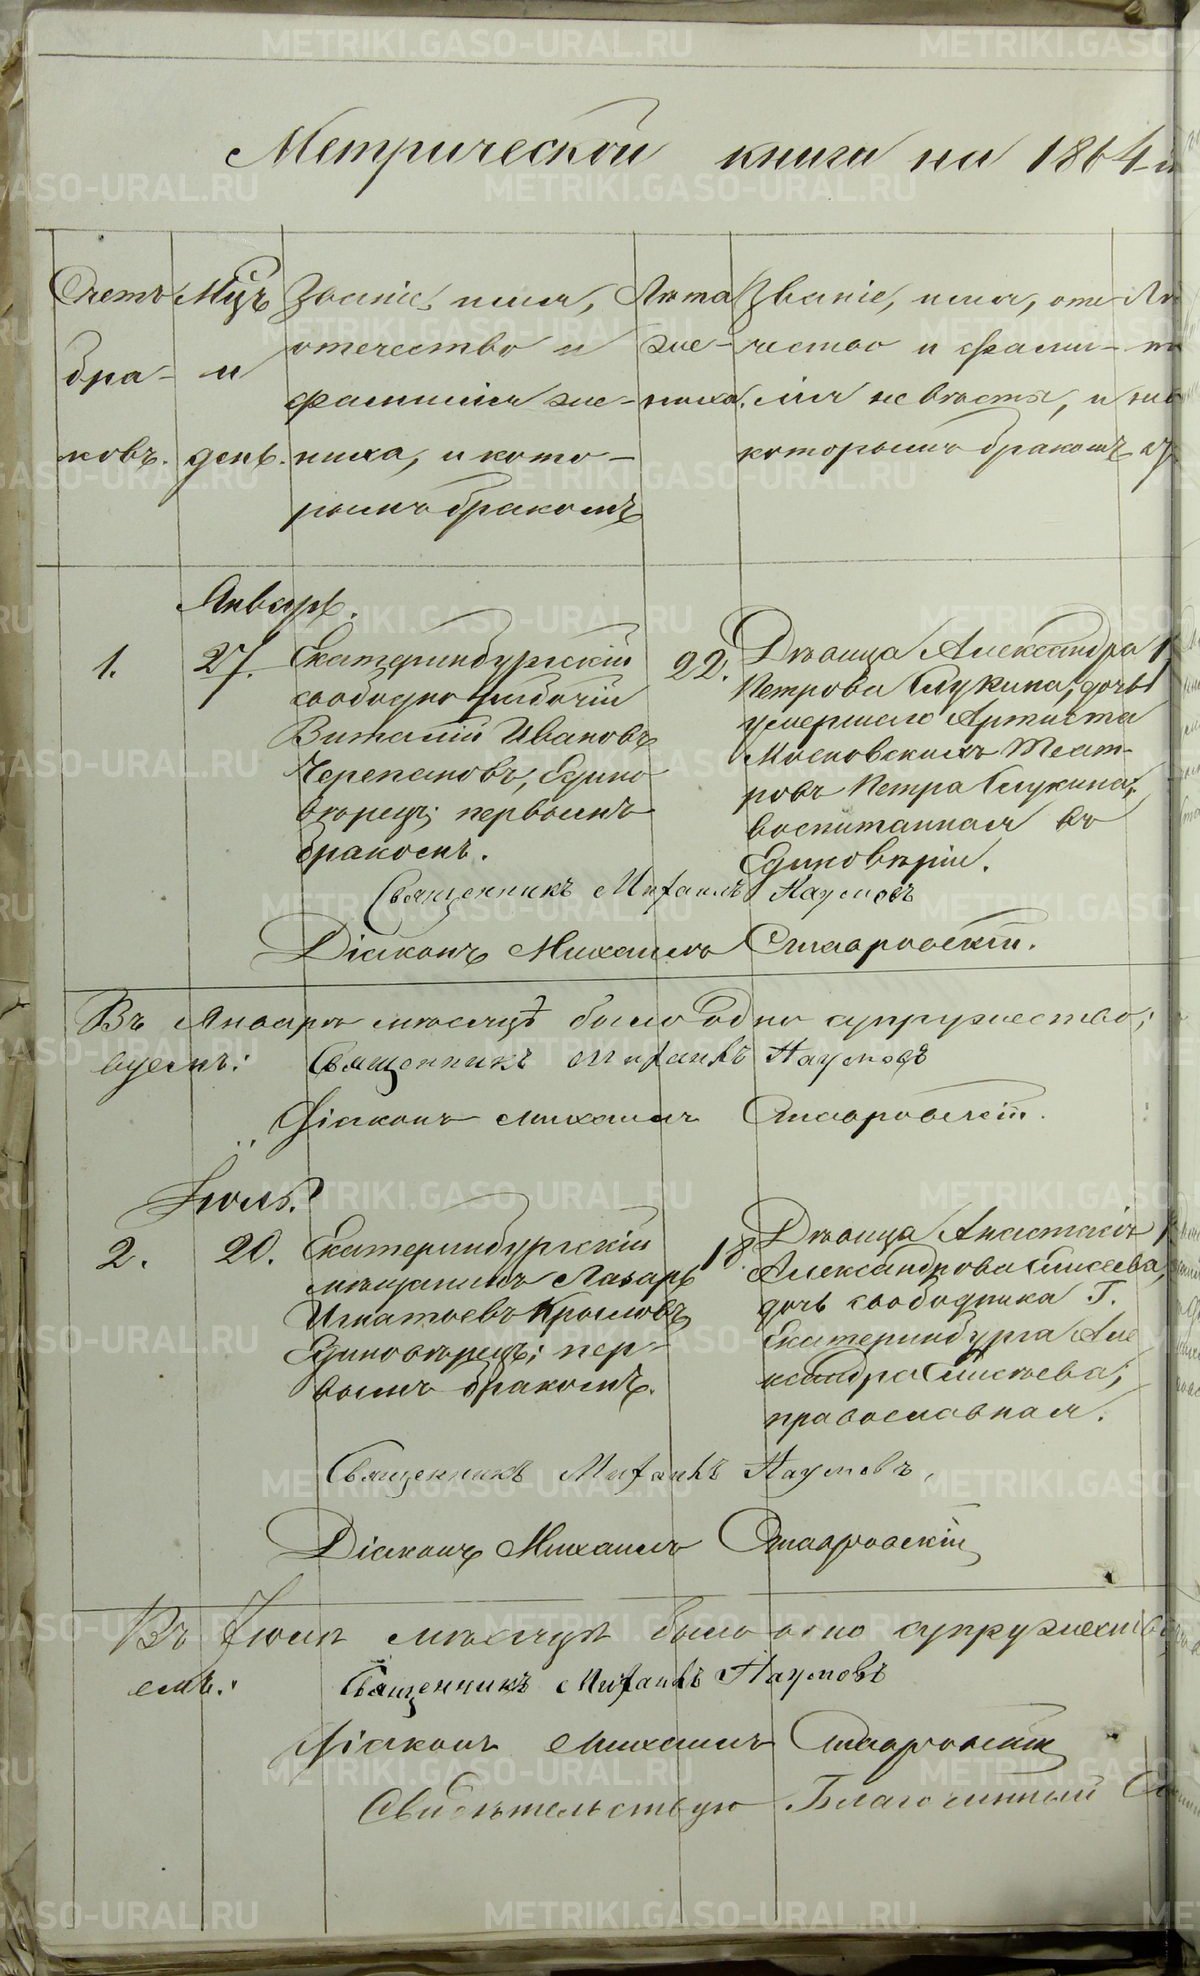 Метрической книги на 1864-й
Счетъ бра- ковъ.
Мцъ и день.
Званіе, имя,
отечество и
фамилія же-
ниха, и кото-
рымъ бракомъ
Лѣта
же-
ниха.
Званіе, имя, оте-
чество и фами-
лія невѣсты, и
которымъ бракомъ
Январь.
1.
27.
Екатеринбургскій
свободно рабочій
Виталій Ивановъ
Черепановъ, Едино-
вѣрецъ; первымъ
бракомъ.
22.
Дѣвица Александра
Петрова Глукина, дочь
умершаго Артиста
Московскихъ Теат-
ровъ Петра Глукина;
воспитанная въ
Единовѣріи.
Священникъ Михаилъ Наумовъ
Діаконъ Михаилъ Ставровскій.
Въ Январѣ мѣсяцѣ было одно супружество;
Священникъ Михаилъ Наумовъ
Діаконъ Михаилъ Ставровскій.
Іюль.
2.
20.
Екатеринбургскій
мѣщанинъ Лазарь
Игнатьевъ Крыловъ
Единовѣрецъ; пер-
вымъ бракомъ.
18.
Дѣвица Анастасія
Александрова Елисеева,
дочь свободника Г.
Екатеринбурга Але
ксандра Елисѣева;
православная.
Священникъ Михаилъ Наумовъ,
Діаконъ Михаилъ Ставровскій
Въ Іюлѣ мѣсяцѣ было одно супружество
Священникъ Михаилъ Наумовъ
Діаконъ Михаилъ Ставровскій
Свидѣтельствую Благочинный
METRIKI.GASO-URAL.RU